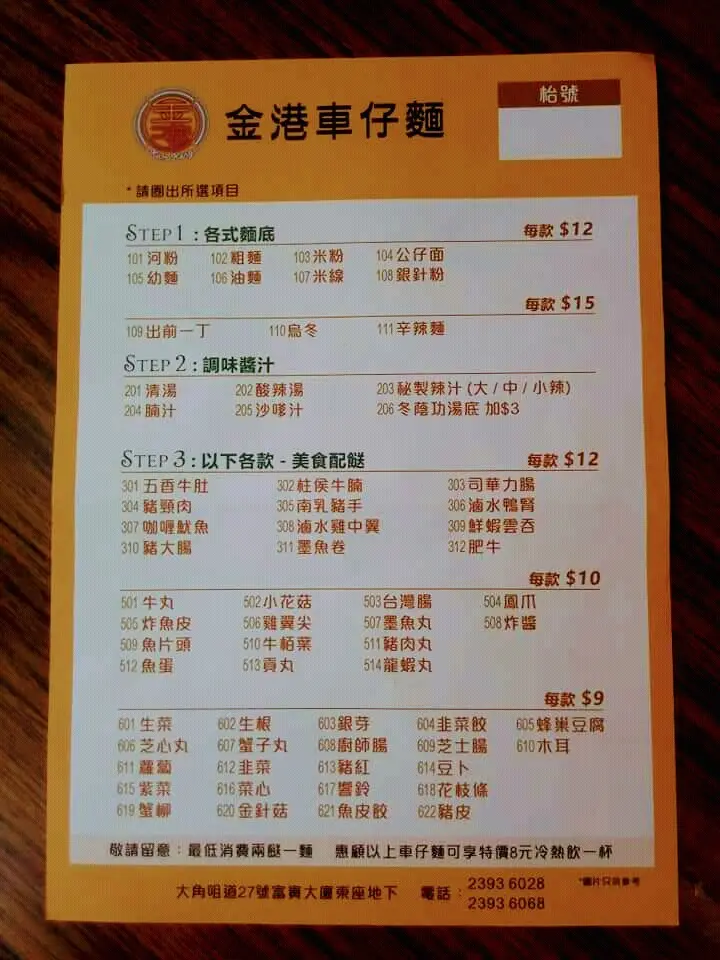 金港車仔麵
枱號
* 請圈出所選項目
STEP 1 : 各式麵底 每款 $12
101 河粉 102 粗麵 103 米粉 104 公仔面
105 幼麵 106 油麵 107 米線 108 銀針粉
每款 $15
109 出前一丁 110 烏冬 111 辛辣麵
STEP 2 : 調味醬汁
201 清湯 202 酸辣湯 203 秘製辣汁 (大 / 中 / 小辣)
204 腩汁 205 沙嗲汁 206 冬蔭功湯底 加$3
STEP 3 : 以下各款 - 美食配餸 每款 $12
301 五香牛肚 302 柱侯牛腩 303 司華力腸
304 豬頸肉 305 南乳豬手 306 滷水鴨腎
307 咖喱魷魚 308 滷水雞中翼 309 鮮蝦雲吞
310 豬大腸 311 墨魚卷 312 肥牛
每款 $10
501 牛丸 502 小花菇 503 台灣腸 504 鳳爪
505 炸魚皮 506 雞翼尖 507 墨魚丸 508 炸醬
509 魚片頭 510 牛栢葉 511 豬肉丸
512 魚蛋 513 貢丸 514 龍蝦丸
每款 $9
601 生菜 602 生根 603 銀芽 604 韭菜餃 605 蜂巢豆腐
606 芝心丸 607 蟹子丸 608 廚師腸 609 芝士腸 610 木耳
611 蘿蔔 612 韭菜 613 豬紅 614 豆卜
615 紫菜 616 菜心 617 響鈴 618 花枝條
619 蟹柳 620 金針菇 621 魚皮餃 622 豬皮
敬請留意 : 最低消費兩餸一麵 惠顧以上車仔麵可享特價8元冷熱飲一杯
大角咀道27號富寶大廈東座地下 電話 : 2393 6028
2393 6068
*圖片只供參考